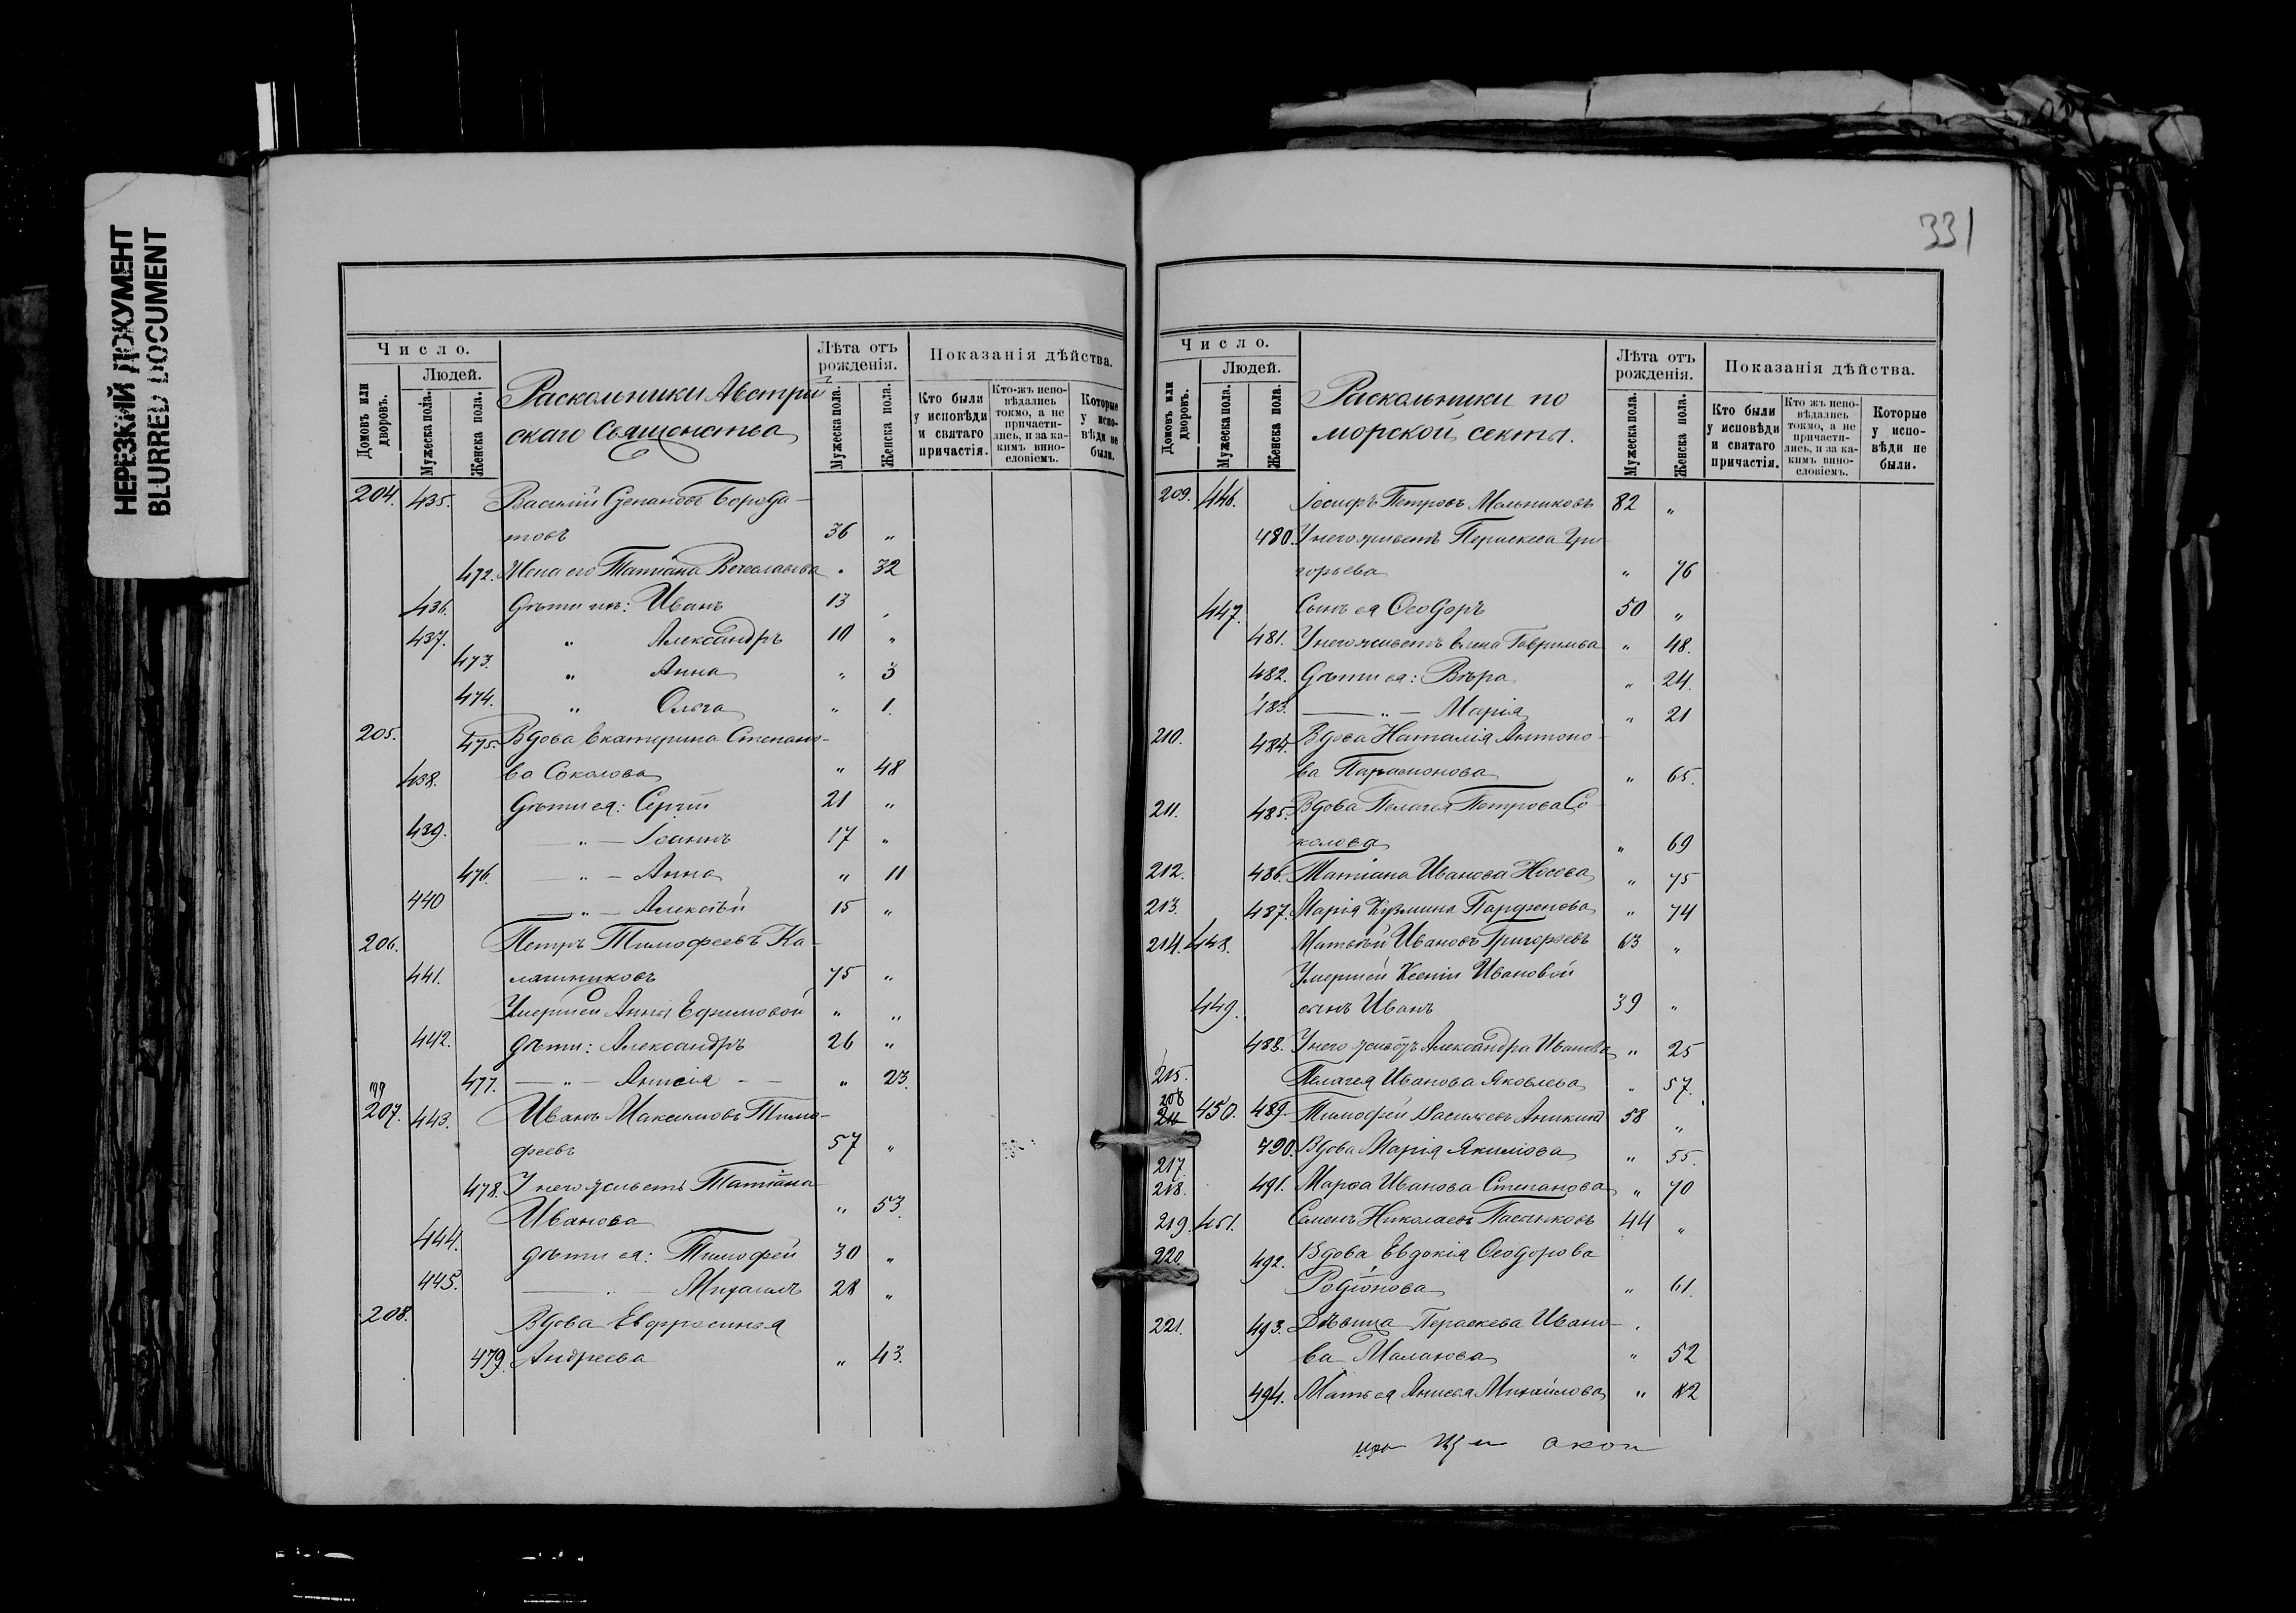 НЕРЕЗКИЙ ДОКУМЕНТ
BLURRED DOCUMENT
Число.
Людей.
Домовъ или дворовъ.
Мужеска пола.
Женска пола.
Раскольники Австрій
скаго Священства
Лѣта отъ рожденія.
Мужеска пола.
Женска пола.
Показанія дѣйства.
Кто были у исповѣди и святаго причастія.
Кто-жъ исповѣдались токмо, а не причастились, и за какимъ винословіемъ.
Которые у исповѣди не были.
204. 435. Василій Степановъ Борода-
товъ 36 „
472. Жена его Татіана Вячеславова „ 32
436. Дѣти ихъ: Иванъ 13 „
437. „ Александръ 10 „
473. „ Анна „ 3
474. „ Ольга „ 1.
205. 475. Вдова Екатерина Степано-
438. ва Соколова „ 48
Дѣти ея: Сергій 21 „
439. — „ — Іоаннъ 17 „
476. — „ — Анна „ 11
440 — „ — Алексѣй 15 „
206. Петръ Тимофеевъ Ка-
441. лашниковъ 75 „
Умершей Анны Ефимовой „ „
442. дѣти: Александръ 26 „
477. — „ — Анисія — — „ 23.
207. 443. Иванъ Максимовъ Тимо-
феевъ 57 „
478. У него живетъ Татіана
Иванова „ 53.
444. дѣти ея: Тимофей 30 „
445. Михаилъ 28 „
208. Вдова Евфросинья
479. Андреева „ 43.
331
Число.
Людей.
Домовъ или дворовъ.
Мужеска пола.
Женска пола.
Раскольники по
морской секты.
Лѣта отъ рожденія.
Мужеска пола.
Женска пола.
Показанія дѣйства.
Кто были у исповѣди и святаго причастія.
Кто жъ исповѣдались токмо, а не причастились, и за какимъ винословіемъ.
Которые у исповѣди не были.
209. 446. Іосифъ Петровъ Мельниковъ 82 „
480. У него живетъ Параскева Гри
горьева „ 76
447. Сынъ ея Ѳеодоръ 50 „
481. У него живетъ Елена Гаврилова „ 48.
482. Дѣти ея: Вѣра „ 24.
483. — „ — Марія „ 21
210. 484. Вдова Наталія Антоно-
ва Парамонова „ 65.
211. 485. Вдова Пелагея Петрова Со
колова „ 69
212. 486. Татіана Иванова Носова „ 75
213. 487. Марія Кузмина Парфенова „ 74
214. 448. Матвѣй Ивановъ Григорьевъ 63 „
Умершей Ксеніи Ивановой
449. сынъ Иванъ 39 „
488. У него живетъ Александра Иванова „ 25
215. Пелагея Иванова Яковлева „ 57.
208
450. 489. Тимофей Васильевъ 58 „
217. 490. Вдова Марія Якимова „ 55.
218. 491. Марѳа Иванова Степанова „ 70
219. 451. Семенъ Николаевъ 44 „
220. 492. Вдова Евдокія Ѳеодорова
Родіонова „ 61.
221. 493. Дѣвица Параскева Ивано-
ва Малахова „ 52
494. Мать ея Анисья Михайлова „ 82